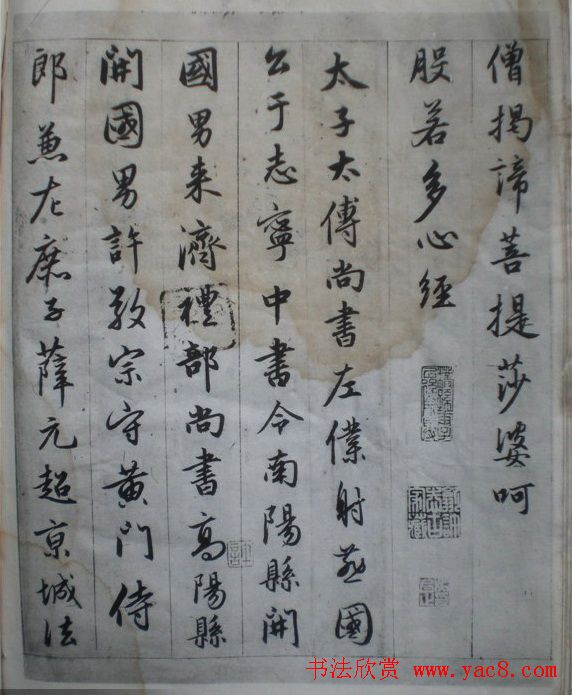 僧揭諦菩提莎婆呵
般若多心經
太子太傅尚書左僕射燕國
公于志寧中書令南陽縣開
國男来濟禮部尚書高陽縣
開國男許敬宗守黄門侍
郎兼左庶子薛元超京城法
书法欣赏
www.yac8.com